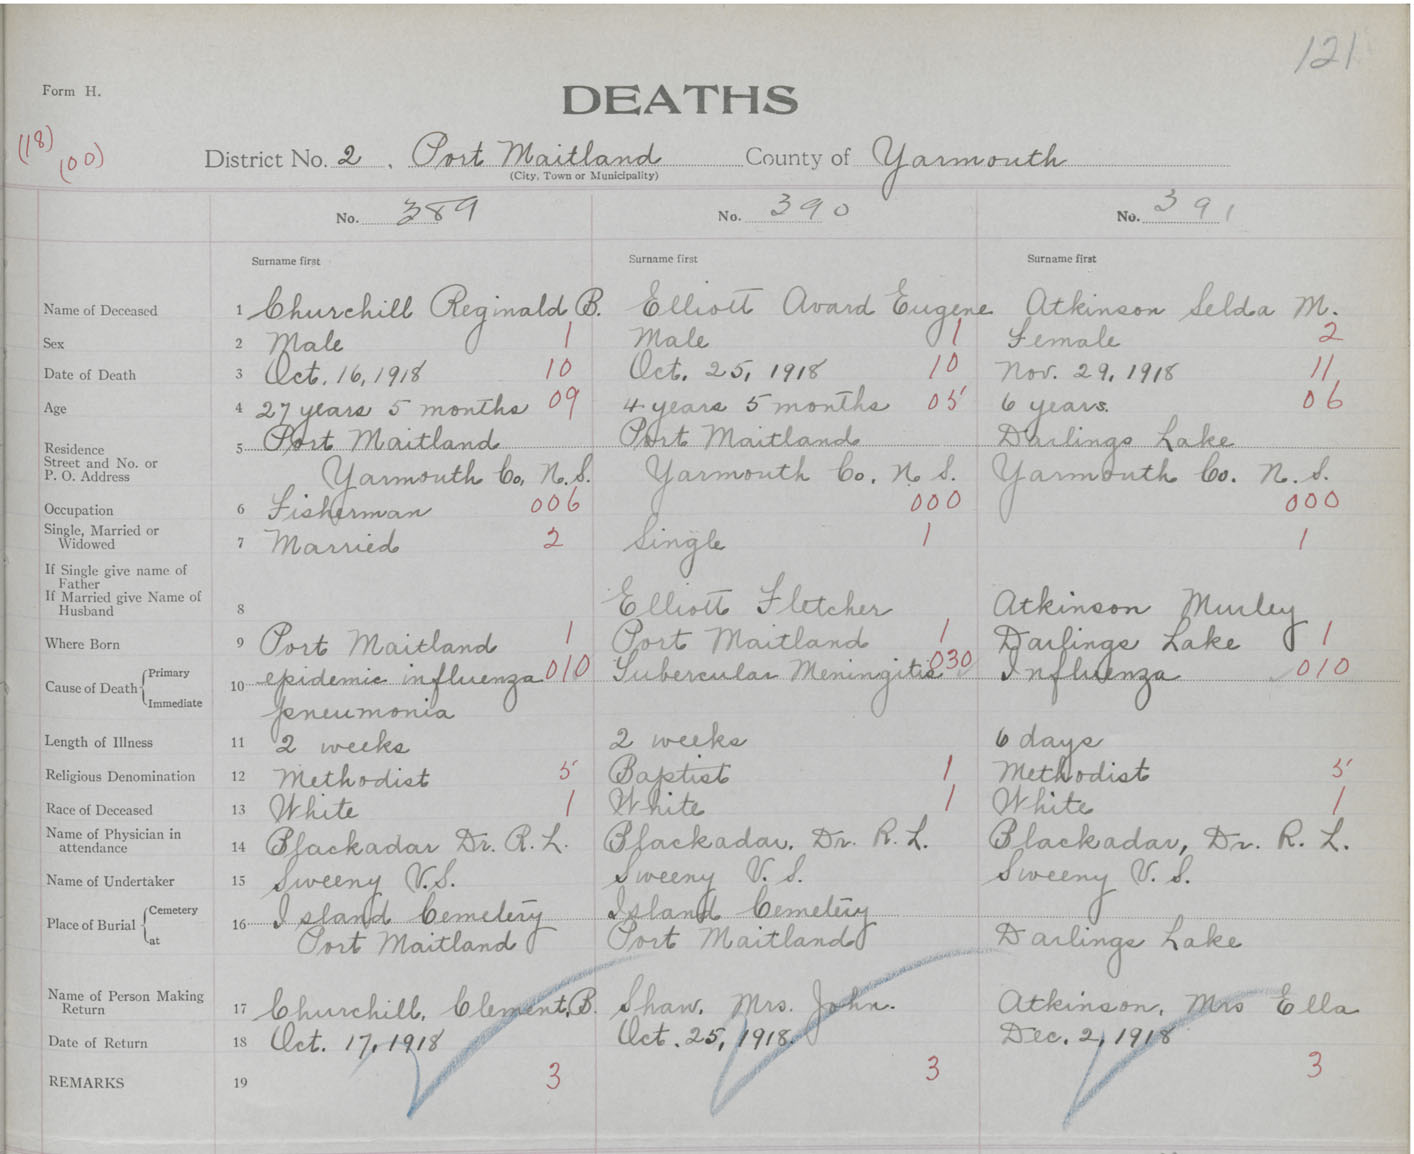 121
Form H.
DEATHS
(18)
(00)
District No. 2. Port Maitland County of Yarmouth
(City, Town or Municipality)
No. 389 No. 390 No. 391
Surname first Surname first Surname first
Name of Deceased 1 Churchill Reginald B. Elliott Avard Eugene Atkinson Selda M.
Sex 2 Male 1 Male 1 Female 2
Date of Death 3 Oct. 16, 1918 10 Oct. 25, 1918 10 Nov. 29, 1918 11
Age 4 27 years 5 months 09 4 years 5 months 05 6 years. 06
Residence 5 Port Maitland Port Maitland Darlings Lake
Street and No. or
P. O. Address Yarmouth Co, N.S. Yarmouth Co. N S. Yarmouth Co. N. S.
Occupation 6 Fisherman 006 000 000
Single, Married or
Widowed 7 Married 2 Single 1 1
If Single give name of
Father
If Married give Name of
Husband 8 Elliott Fletcher Atkinson Murley
Where Born 9 Port Maitland 1 Port Maitland 1 Darlings Lake 1
Cause of Death { Primary 10 epidemic influenza 010 Tubercular Meningitis 030 Influenza 010
Immediate pneumonia
Length of Illness 11 2 weeks 2 weeks 6 days
Religious Denomination 12 Methodist 5 Baptist 1 Methodist 5
Race of Deceased 13 White 1 White 1 White 1
Name of Physician in
attendance 14 Blackadar Dr. R. L. Blackadar, Dr. R. L. Blackadar, Dr. R. L.
Name of Undertaker 15 Sweeny V.S. Sweeny V. S. Sweeny V. S.
Place of Burial { Cemetery 16 Island Cemetery Island Cemetery
at Port Maitland Port Maitland Darlings Lake
Name of Person Making
Return 17 Churchill, Clement, B. Shaw, Mrs. John. Atkinson, Mrs Ella
Date of Return 18 Oct. 17, 1918 Oct. 25, 1918. Dec. 2, 1918
REMARKS 19 3 3 3